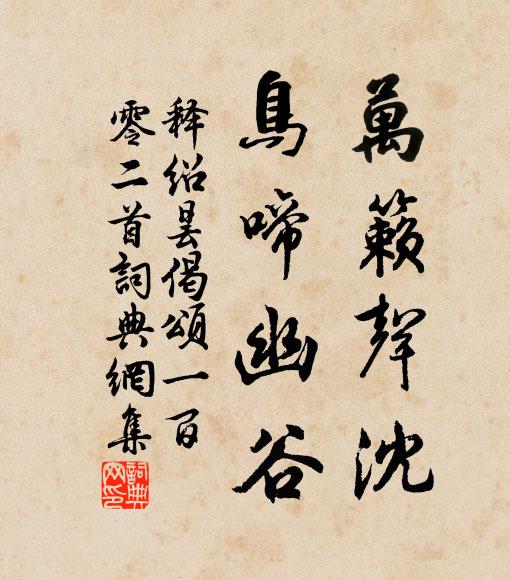 萬籟聲沈
鳥啼幽谷
釋紹曇偈頌一百
零二首詞典網集
詞典
網印